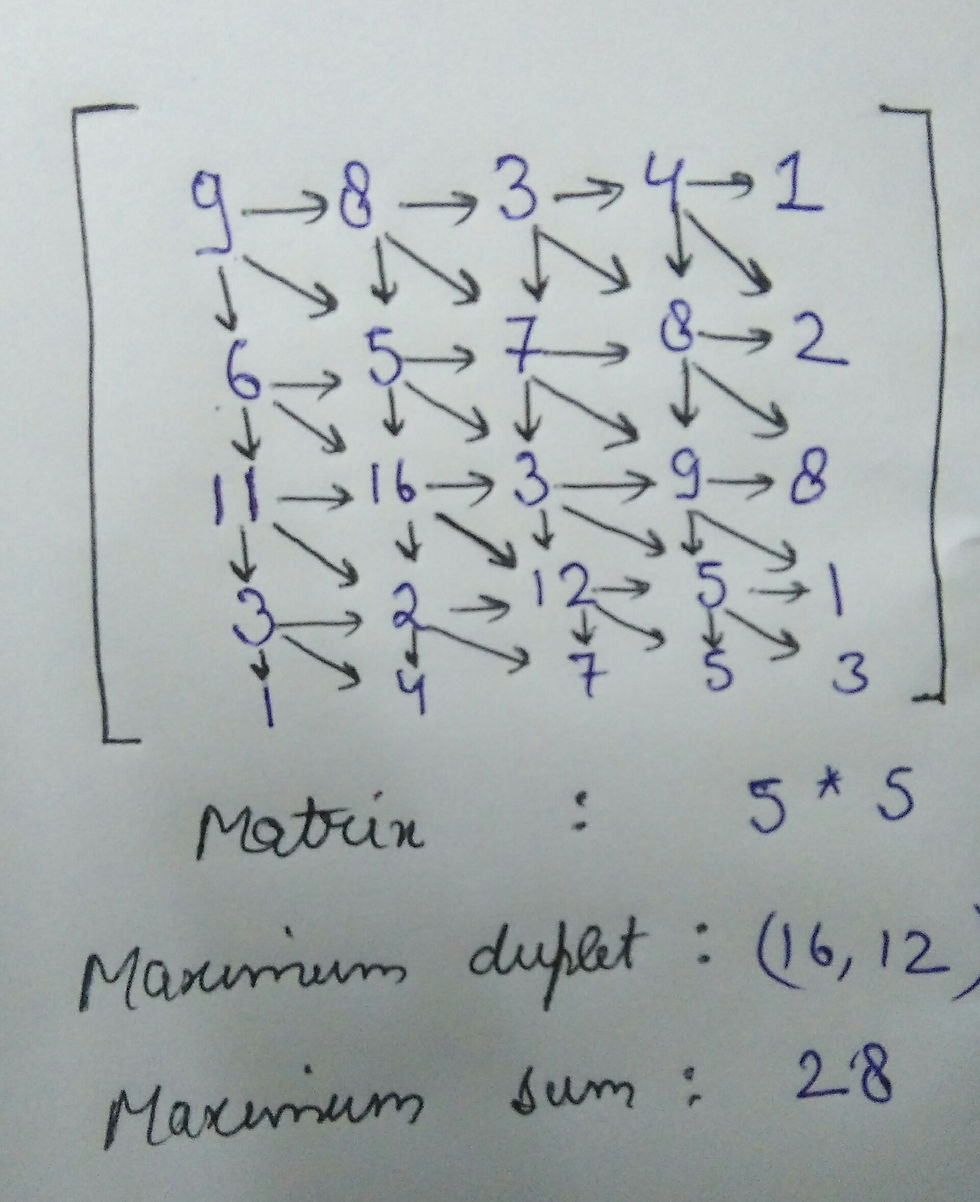 9 → 8 → 3 → 4 → 1
6 → 5 → 7 → 8 → 2
11 → 16 → 3 → 9 → 8
3 → 2 → 12 → 5 → 1
1 4 7 5 3
Matrix : 5 * 5
Maximum duplet : (16, 12)
Maximum sum : 28